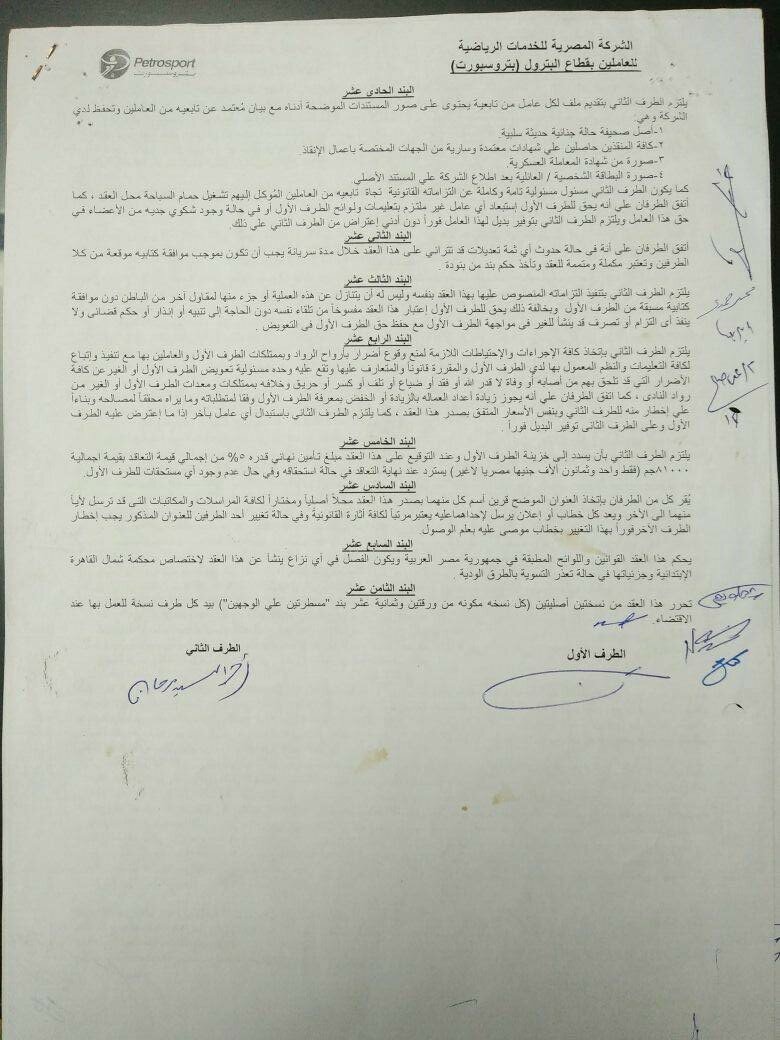 الشركة المصرية للخدمات الرياضية
للعاملين بقطاع البترول (بتروسبورت)
Petrosport
بتروسبورت
البند الحادي عشر
يلتزم الطرف الثاني بتقديم ملف لكل عامل من تابعية يحتوى على صور المستندات الموضحة أدناه مع بيان مُعتمد عن تابعيه من العاملين وتحفظ لدي
الشركة وهي.
١-أصل صحيفة حالة جنائية حديثة سلبية.
٢-كافة المنقذين حاصلين علي شهادات معتمدة وسارية من الجهات المختصة باعمال الإنقاذ.
٣-صورة من شهادة المعاملة العسكرية.
٤-صورة البطاقة الشخصية / العائلية بعد اطلاع الشركة علي المستند الأصلي
كما يكون الطرف الثاني مسئول مسئولية تامة وكاملة عن التزاماته القانونية تجاة تابعيه من العاملين المُوكل إليهم تشغيل حمام السباحة محل العقد ، كما
أتفق الطرفان علي أنه يحق للطرف الأول إستبعاد أي عامل غير ملتزم بتعليمات ولوائح الطرف الأول أو في حالة وجود شكوي جديه من الأعضاء في
حق هذا العامل ويلتزم الطرف الثاني بتوفير بديل لهذا العامل فوراً دون أدني إعتراض من الطرف الثاني علي ذلك
البند الثاني عشر
أتفق الطرفان على أنة في حالة حدوث أي ثمة تعديلات قد تتراني على هذا العقد خلال مدة سريانة يجب أن تكون بموجب موافقة كتابيه موقعة من كلا
الطرفين وتعتبر مكملة ومتممة للعقد وتأخذ حكم بند من بنودة .
البند الثالث عشر
يلتزم الطرف الثاني بتنفيذ التزاماته المنصوص عليها بهذا العقد بنفسه وليس له أن يتنازل عن هذه العملية أو جزء منها لمقاول آخر من الباطن دون موافقة
كتابية مسبقة من الطرف الأول وبخالفة ذلك يحق للطرف الأول إعتبار هذا العقد مفسوخاً من تلقاء نفسه دون الحاجة إلى تنبيه أو إنذار أو حكم قضائى ولا
ينفذ أى التزام أو تصرف قد ينشأ للغير فى مواجهة الطرف الأول مع حفظ حق الطرف الأول فى التعويض .
البند الرابع عشر
يلتزم الطرف الثاني بإتخاذ كافة الإجراءات والإحتياطات اللازمة لمنع وقوع أضرار بأرواح الرواد وبممتلكات الطرف الأول والعاملين بها مع تنفيذ وإتباع
لكافة التعليمات والنظم المعمول بها لدي الطرف الأول والمقررة قانوناً والمتعارف عليها وتقع عليه وحده مسئولية تعويض الطرف الأول أو الغير عن كافة
الأضرار التي قد تلحق بهم من أصابه أو وفاة لا قدر الله أو فقد أو ضياع أو تلف أو كسر أو حريق وخلافه بممتلكات ومعدات الطرف الأول أو الغير من
رواد النادى ، كما اتفق الطرفان علي أنه يجوز زيادة أعداد العماله بالزيادة أو الخفض بمعرفة الطرف الأول وفقا لمتطلباته وما يراه محققاً لمصالحه وبناءاً
علي إخطار منه للطرف الثاني وبنفس الأسعار المتفق بصدر هذا العقد ، كما يلتزم الطرف الثاني باستبدال أي عامل بآخر إذا ما إعترض عليه الطرف
الأول وعلى الطرف الثانى توفير البديل فوراً .
البند الخامس عشر
يلتزم الطرف الثاني بأن يسدد إلى خزينة الطرف الأول وعند التوقيع على هذا العقد مبلغ تأمين نهائي قدره ٥% من إجمالي قيمة التعاقد بقيمة اجمالية
٨١٠٠٠جم (فقط واحد وثمانون ألاف جنيها مصريا لاغير) يسترد عند نهاية التعاقد في حالة استحقاقه وفي حال عدم وجود أي مستحقات للطرف الأول.
البند السادس عشر
يُقر كل من الطرفان بإتخاذ العنوان الموضح قرين أسم كل منهما بصدر هذا العقد محلاً أصلياً ومختاراً لكافة المراسلات والمكاتبات التى قد ترسل لأياً
منهما الى الآخر ويعد كل خطاب أو إعلان يرسل لإحداهماعليه يعتبرمرتباً لكافة أثارة القانونية وفي حالة تغيير أحد الطرفين للعنوان المذكور يجب إخطار
الطرف الآخرفوراً بهذا التغيير بخطاب موصى عليه بعلم الوصول.
البند السابع عشر
يحكم هذا العقد القوانين واللوائح المطبقة في جمهورية مصر العربية ويكون الفصل في أي نزاع ينشأ عن هذا العقد لاختصاص محكمة شمال القاهرة
الإبتدائية وجزئياتها في حالة تعذر التسوية بالطرق الودية .
البند الثامن عشر
تحرر هذا العقد من نسختين أصليتين (كل نسخه مكونه من ورقتين وثمانية عشر بند "مسطرتين علي الوجهين") بيد كل طرف نسخة للعمل بها عند
الاقتضاء.
الطرف الأول
الطرف الثاني